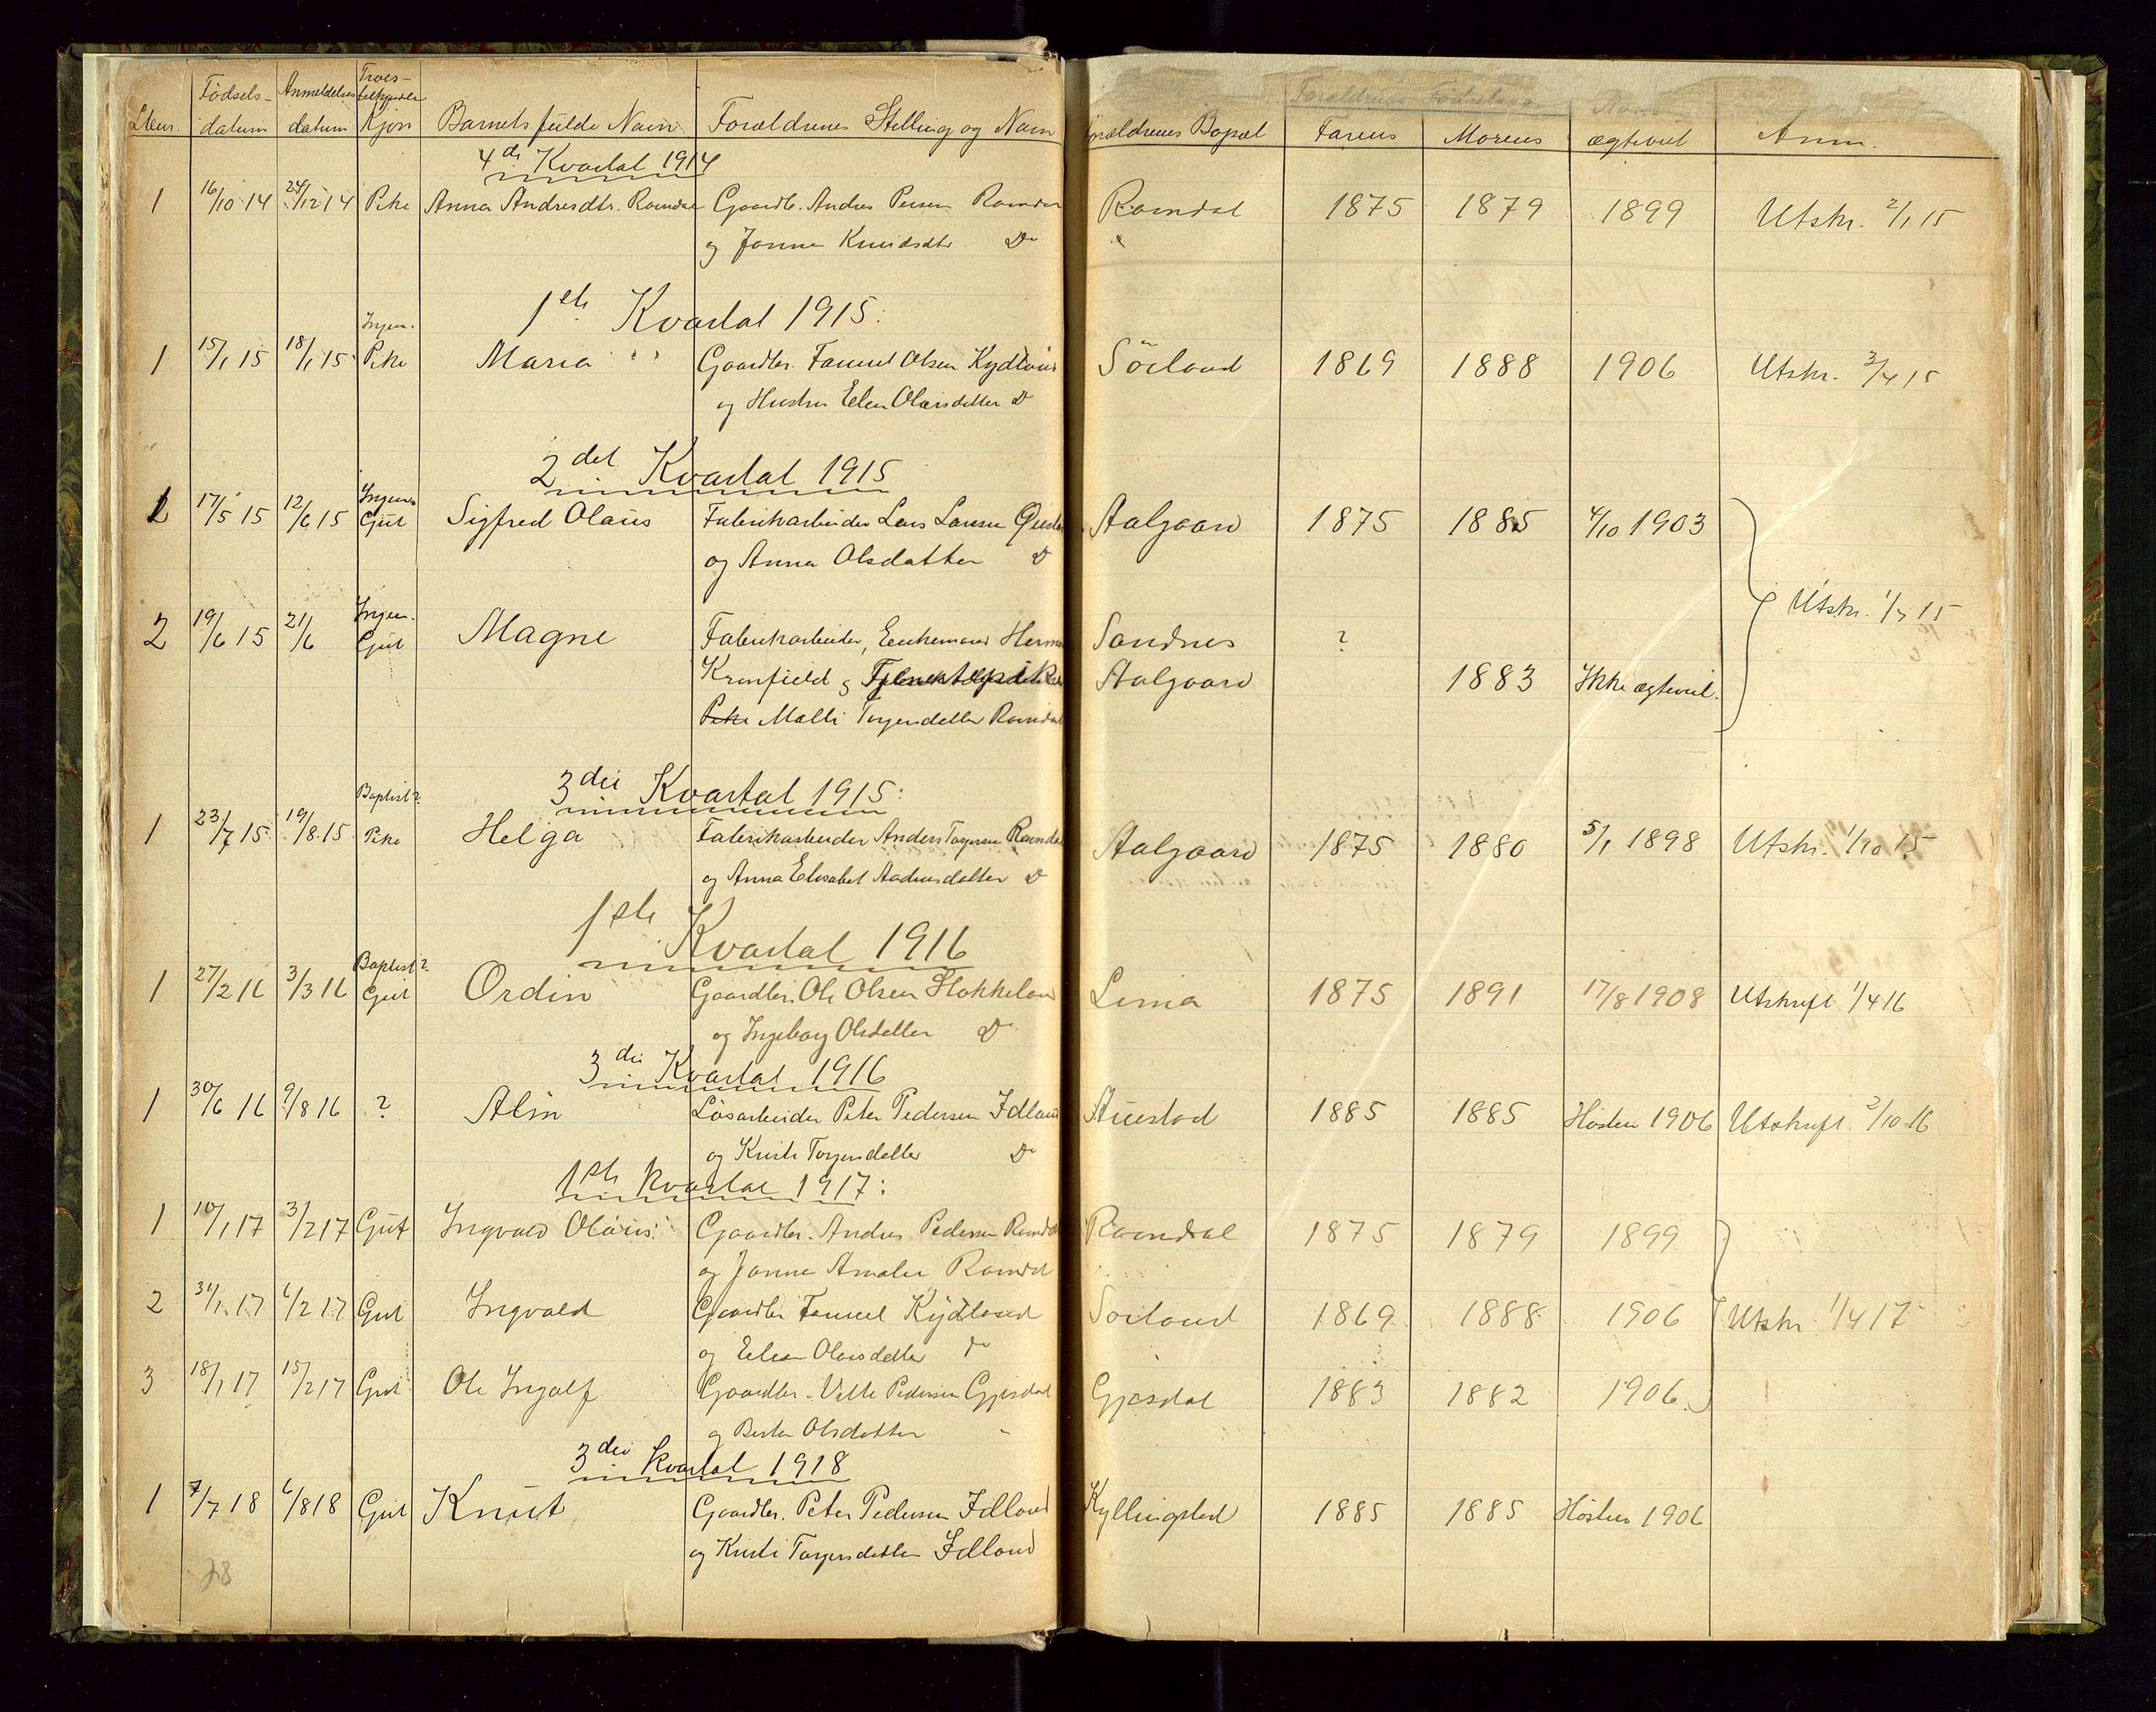 Fødsels- Anmeldelses Troes-
datum datum Kjøn Barnets fulde Navn Forældrenes Stilling og Navn Forældrenes Bopæl Farens Morens ægteviet Anm.
4de Kvartal 1914
1 16/10 14 24/12 14 Pike Anna Andresdtr. Ramdal Gaardbr. Andres Persen Ramdal Ramdal 1875 1879 1899 Utskr. 2/1 15
og Janna Knudsdtr Do
1ste Kvartal 1915:
Ingen.
1 15/1 15 18/1 15 Pike Maria Gaardbr. Samuel Olsen Kydland Sörland 1869 1888 1906 Utskr. 3/4 15
og Hustru Elen Olavsdatter Do
2det Kvartal 1915
Ingen.
1 17/5 15 12/6 15 Gut Sigfred Olaus Fabrikarbeider Lars Larsen Aalgaard 1875 1885 4/10 1903
og Anna Olsdatter Do
Utskr. 1/7 15
Ingen.
2 19/6 15 21/6 Gut Magne Fabrikarbeider, Enkemand Herman Sandnes ?
Kronfield og Aalgaard 1883 Ikke ægteviet.
Pike Malli Torgersdatter Ramdal
3die Kvartal 1915:
Baptist?
1 23/7 15 19/8 15 Pike Helga Fabrikarbeider Anders Torgersen Ramdal Aalgaard 1875 1880 5/1 1898 Utskr. 1/10 15
og Anna Elisabet Aadnesdatter Do
1ste Kvartal 1916
Baptist?
1 27/2 16 3/3 16 Gut Ordin Gaardbr. Ole Olsen Lima 1875 1891 17/8 1908 Utskrift 1/4 16
og Ingeborg Olsdatter Do
3die Kvartal 1916
1 30/6 16 9/8 16 ? Alin Løsarbeider Peter Pedersen Idland Auestad 1885 1885 Høsten 1906 Utskrift 2/10 16
og Kristi Torgersdatter Do
1ste Kvartal 1917:
1 10/1 17 3/2 17 Gut Ingvald Olaus Gaardbr. Andres Pedersen Ramdal Ramdal 1875 1879 1899
og Janna Amalie Ramdal
2 31/1 17 6/2 17 Gut Ingvald Gaardbr Samuel Kydland Sörland 1869 1888 1906 Utskr 1/4 17
og Elen Olavsdatter do
3 18/1 17 15/2 17 Gut Ole Ingolf Gaardbr. Pedersen Gjesdal Gjesdal 1883 1882 1906
og Berta Olsdatter
3die Kvartal 1918
1 7/7 18 6/8 18 Gut Knut Gaardbr. Peter Pedersen Idland Kyllingstad 1885 1885 Høsten 1906
og Kristi Torgersdatter Idland
28